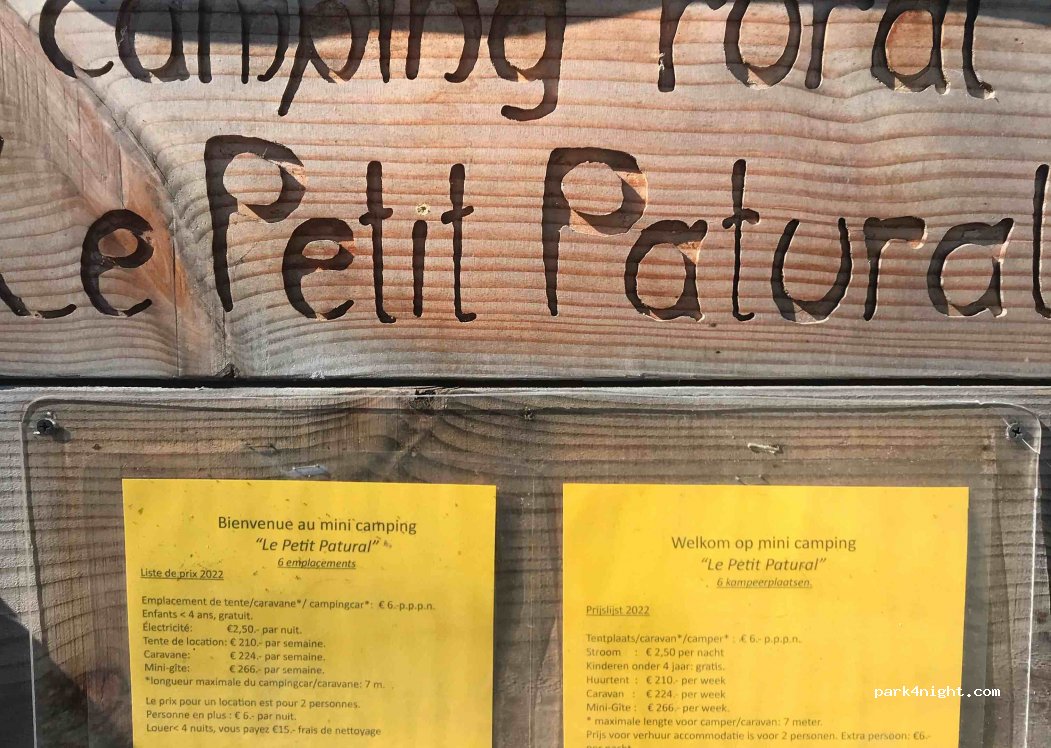 camping rural
Le Petit Patural
Bienvenue au mini camping
“Le Petit Patural”
6 emplacements
Liste de prix 2022
Emplacement de tente/caravane*/ campingcar*: € 6.-p.p.p.n.
Enfants < 4 ans, gratuit.
Électricité: €2,50.- par nuit.
Tente de location: € 210.- par semaine.
Caravane: € 224.- par semaine.
Mini-gîte: € 266.- par semaine.
*longueur maximale du campingcar/caravane: 7 m.
Le prix pour un location est pour 2 personnes.
Personne en plus : € 6.- par nuit.
Louer< 4 nuits, vous payez €15.- frais de nettoyage
Welkom op mini camping
“Le Petit Patural”
6 kampeerplaatsen.
Prijslijst 2022
Tentplaats/caravan*/camper* : € 6.- p.p.p.n.
Stroom : € 2,50 per nacht
Kinderen onder 4 jaar: gratis.
Huurtent : € 210.- per week
Caravan : € 224.- per week
Mini-Gîte : € 266.- per week.
* maximale lengte voor camper/caravan: 7 meter.
Prijs voor verhuur accommodatie is voor 2 personen. Extra persoon: €6.-
per nacht
park4night.com